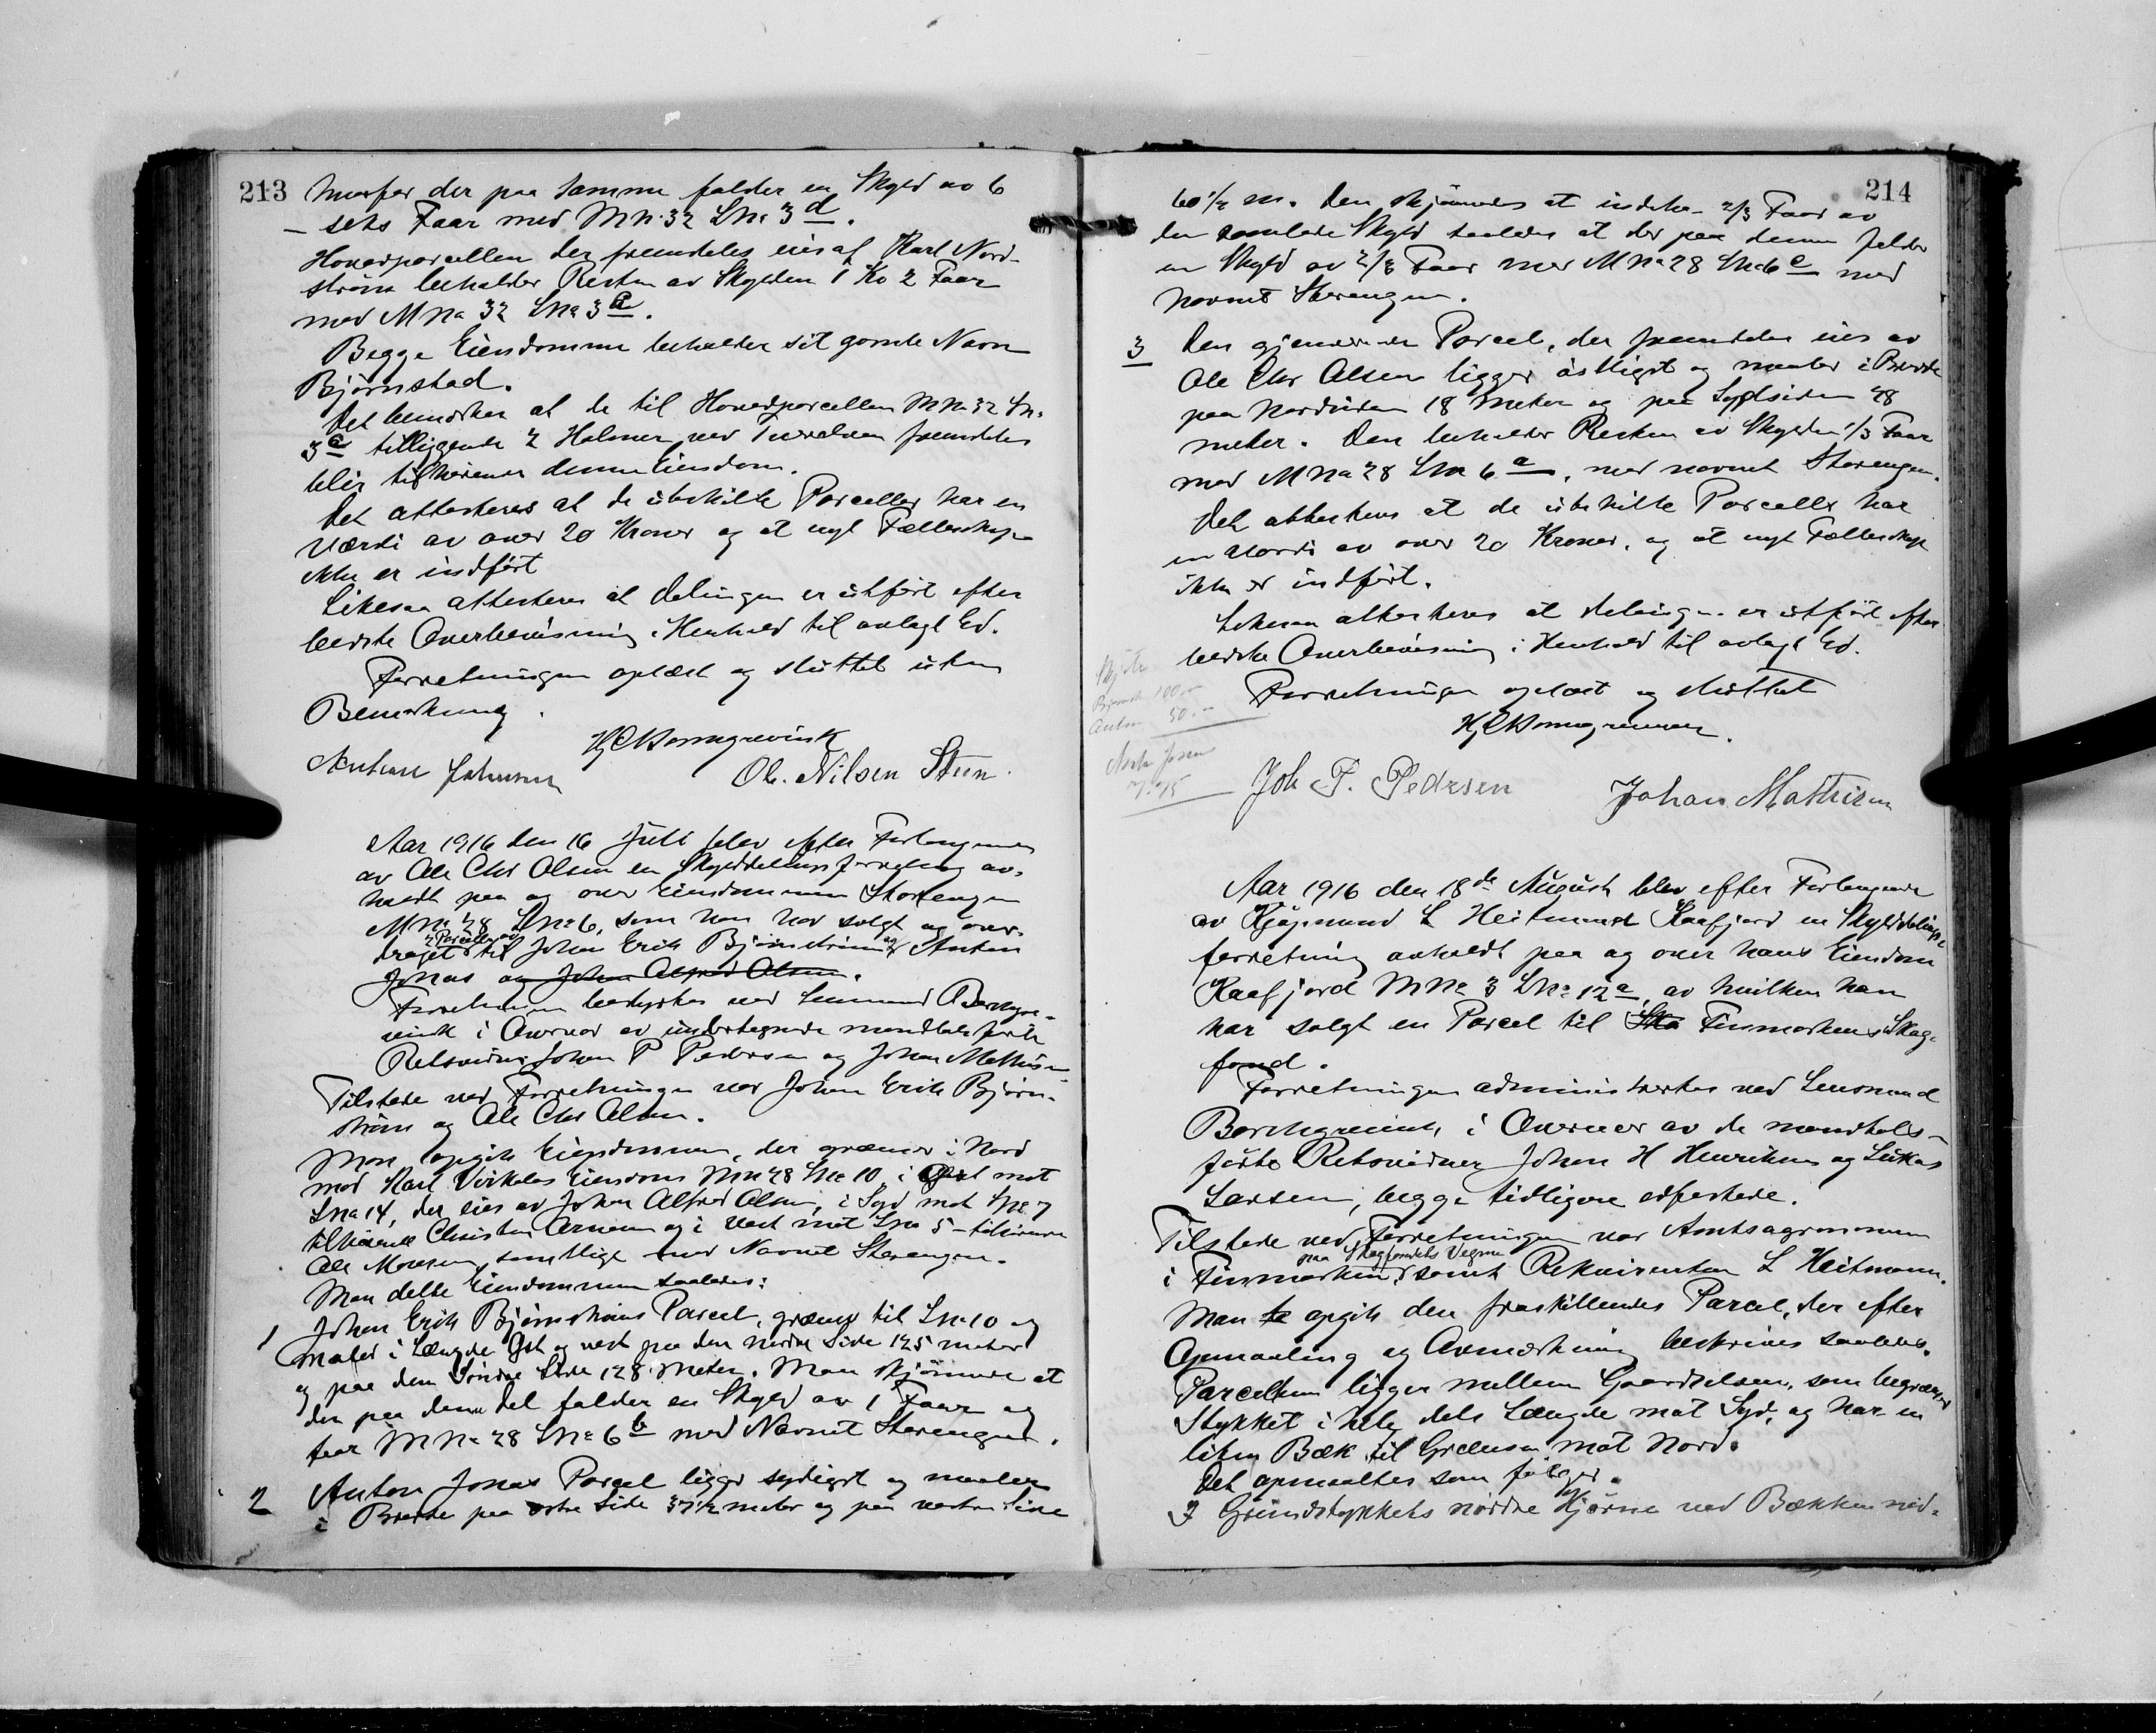 213
hvorfor der paa samme falder en Skyld av 6
- seks Faar med M No 32 L No 3 d.
Hovedparcellen der fremdeles eies af Karl Nord-
strøm beholder Resten av Skylden 1 Ko 2 Faar
med M No 32 L No 3 a.
Begge Eiendomme beholder sit gamle Navn
Bjørnstad.
Det bemerkes at de til Hovedparcellen M No 32 L No
3 a tilliggende 2 Holmer ved fremdeles
blir tilhørende denne Eiendom.
Det attesteres at de utskilte Parceller har en
Værdi av over 20 Kroner og at nyt Fællesskap
ikke er indført
Likesaa attesteres at Delingen er utført efter
bedste Overbevisning i Henhold til avlagt Ed.
Forretningen oplæst og sluttet uten
Bemerkning.
H C Borchgrevink
Anton Johnsen Ole Nilsen Steen.
Aar 1916 den 16 Juli blev efter Forlangende
av Ole Chr Olsen en Skylddelingsforretning av-
holdt paa og over Eiendommen Storengen
M No 28 L No 6, som han har solgt og over-
draget 2 Parceller av til Johan Erik Bjørnstrøm og Anton
Jonas og Johan Alfred Olsen.
Forretningen bestyrtes ved Lensmand Borchgre-
vink i Overvær av undertegnede mandtalsførte
Retsvidner Johan P Pedersen og Johan Mathisen
Tilstede ved Forretningen var Johan Erik Bjørn-
strøm og Ole Chr Olsen.
Man opgik Eiendommen, der grænser i Nord
mod Karl Eiendom M No 28 L No 10, i Øst mot
L No 14, der eies av Johan Alfred Olsen, i Syd mot L No 7
tilhørende Christen og i Vest mot L No 5 - tilhørende
Ole samtlige med Navnet Storengen.
Man delte Eiendommen saaledes:
1 Johan Erik Bjørnstrøms Parcel, grænser til L No 10 og
maaler i Længde Øst og vest paa den nordre Side 125 meter
og paa den Søndre Side 128 Meter. Man skjønnede at
der paa denne Del falder en Skyld av 1 Faar og
faar M No 28 L No 6 b med Navnet Storengen.
2 Anton Jonas Parcel ligger sydligst og maaler
i Bredde paa østre Side 37½ meter og paa vestre Side
214
60½ m. Den skjønnedes at indeha 2/3 Faar av
den samlede Skyld saaledes at der paa denne falder
en Skyld av 2/3 Faar med M No 28 L No 6 c med
Navnet Storengen.
3 Den gjenværende Parcel, der fremdeles eies av
Ole Chr Olsen ligger østligst og maaler i Bredde
paa Nordsiden 18 Meter og paa Sydsiden 28
meter. Den beholder Resten av Skylden 1/3 Faar
med M No 28 L No 6 a, med navnet Storengen.
Det attesteres at de utskilte Parceller har
en Værdi av over 20 Kroner, og at nyt Fællesskap
ikke er indført.
Likesaa attesteres at delingen er utført efter
bedste Overbevisning i Henhold til avlagt Ed.
Skjøte
100.00
Anton 50.-
Forretningen oplæst og sluttet
H C Borchgrevink.
7.75
Joh P. Pedersen Johan Mathisen
Aar 1916 den 18de August blev efter Forlangende
av Kjøpmand L Heitmand Kaafjord en Skylddelings-
forretning avholdt paa og over hans Eiendom
Kaafjord M No 3 L No 12 a, av hvilken han
har solgt en Parcel til Ska Finmarkens Skog-
fond.
Forretningen administrertes ved Lensmand
Borchgrevink, i Overvær av de mandtals-
førte Retsvidner Johan H Henriksen og Lukas
Larsen, begge tidligere edfestede.
Tilstede ved Forretningen var Amtsagronomen
i Finmarken, paa Skogfondets Vegne samt Rekvirenten L Heitmann.
Man te opgik den fraskillendes Parcel, der efter
Opmaaling og Avmerkning beskrives saaledes.
Parcellen ligger mellem Gaardselven, som begrænser
Stykket i hele dets Længde mot Syd, og har en
liten Bæk til Grænse mot Nord.
Det opmaaltes som følger.
I Grundstykkets nordre Hjørne ved Bækken ned-